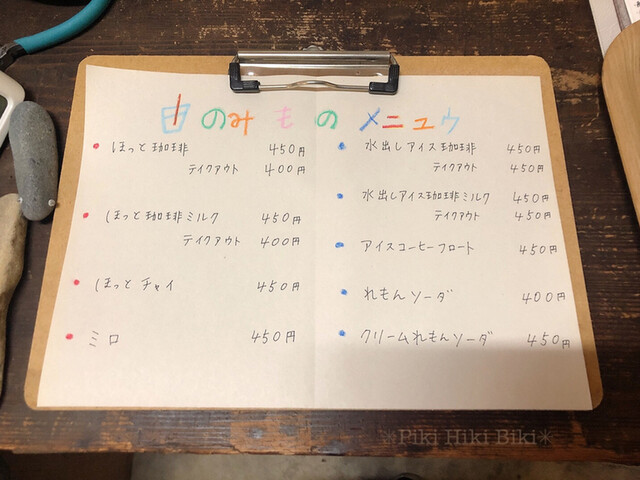 のみものメニュウ
ほっと珈琲 450円
テイクアウト 400円
ほっと珈琲ミルク 450円
テイクアウト 400円
ほっとチャイ 450円
ミロ 450円
水出しアイス珈琲 450円
テイクアウト 450円
水出しアイス珈琲ミルク 450円
テイクアウト 450円
アイスコーヒーフロート 450円
れもんソーダ 400円
クリームれもんソーダ 450円
※Piki Hiki Biki※